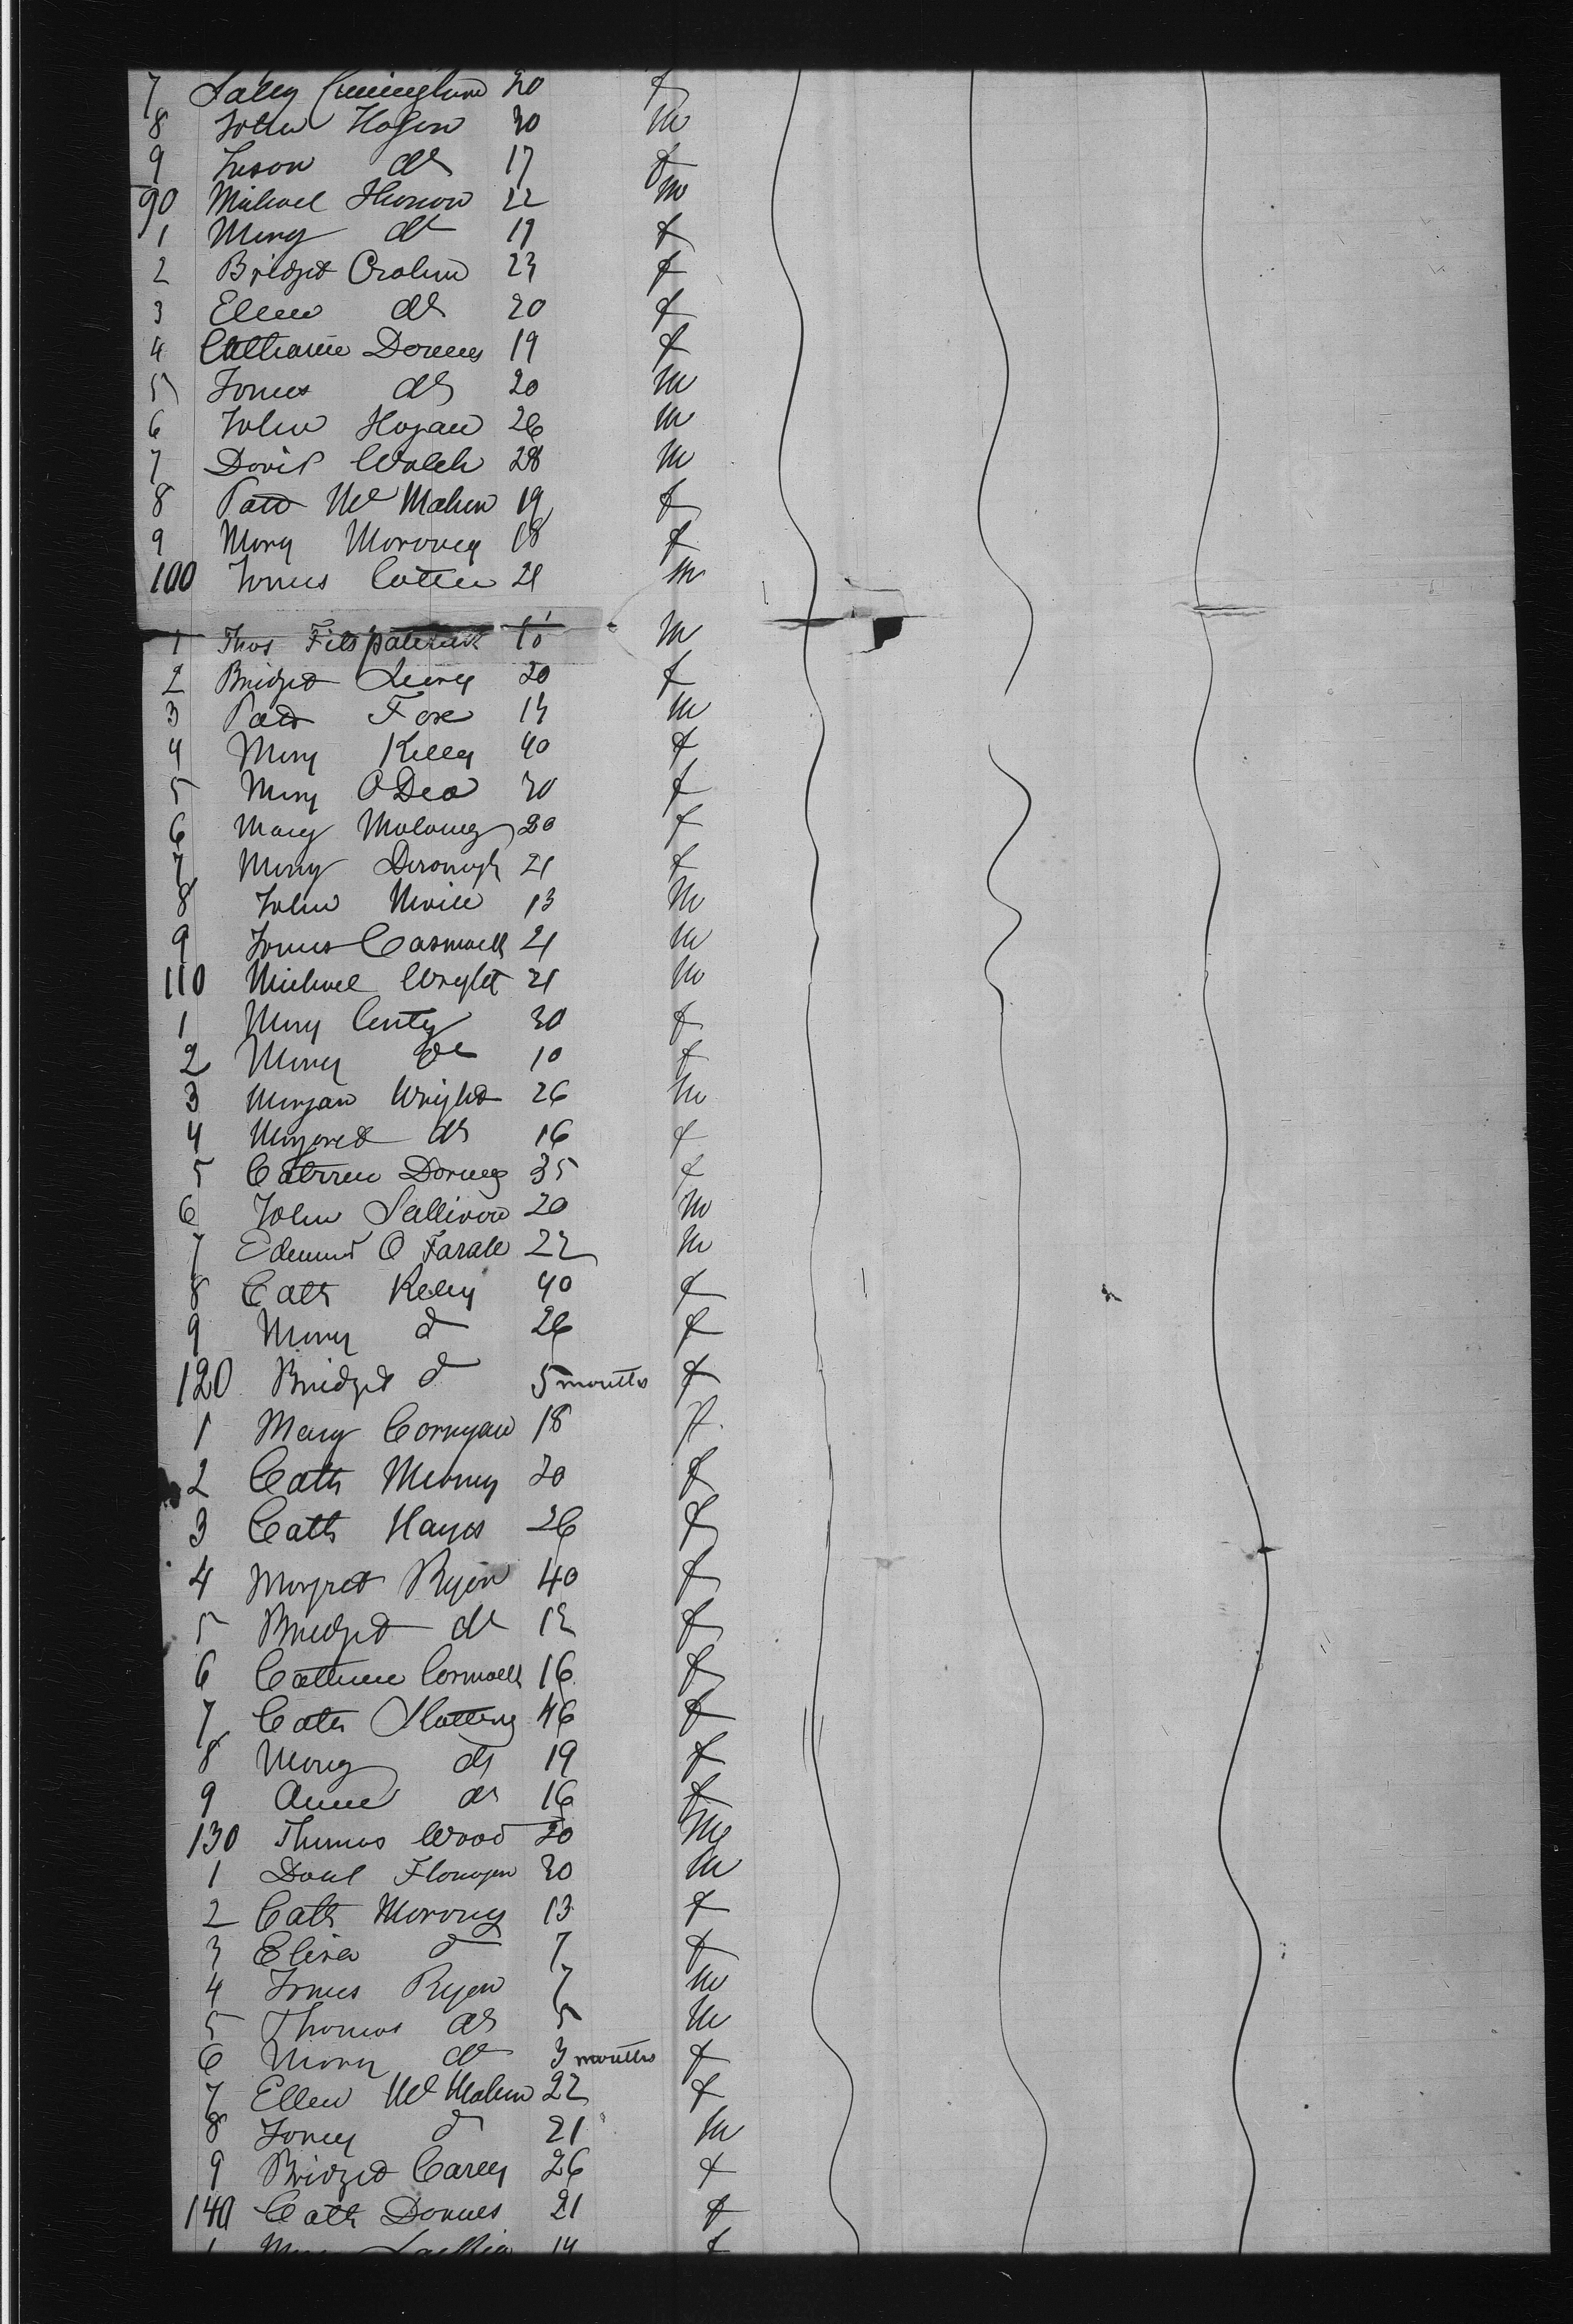 7 Saley Cuninghan 20 f
8 John Hogen 30 m
9 Susan do 17 f
90 Michael Thomon 22 m
1 Mery do 19 f
2 Bridget Crolin 23 f
3 Ellen do 20 f
4 Catharine Downey 19 f
5 James do 20 m
6 John Hogan 26 m
7 David Walch 28 m
8 Patt Mc Mahon 19 f
9 Mary Moroney 18 f
100 James Cotter 21 m
1 Thos Fitspatrick 10 m
2 Bridget 20 f
3 Patt Fox 14 m
4 Mery Kelly 40 f
5 Mery O Dea 30 f
6 Mary Maloney 20 f
7 Mery Doronogh 21 f
8 John 13 m
9 James Casmaell 21 m
110 Michael Wryht 21 m
1 Mery Centy 30 f
2 Mery do 10 f
3 Morgan Wright 26 m
4 Margaret do 16 f
5 Catrren Dorney 35 f
6 John Sallivan 20 m
7 Edmund O Farale 22 m
8 Cath Kelly 40 f
9 Mery d 26 f
120 Bridget d 5 months f
1 Mary Cornyan 18 f
2 Cath Merony 20 f
3 Cath Hayes 26 f
4 Margret Ryan 40 f
5 Bridget do 12 f
6 Cathrine Cormaell 16 f
7 Cath Slattery 46 f
8 Mary do 19 f
9 Anne do 16 f
130 Thomas Wood 20 m
1 Danl Flonagan 30 m
2 Cath Morony 13 f
3 Elisa d 7 f
4 James Ryan 7 m
5 Thomas do 5 m
6 Mary do 3 months f
7 Ellen Mc Mahon 22 f
8 d 21 m
9 Bridget Carey 26 f
140 Cath Downes 21 f
1 14 f